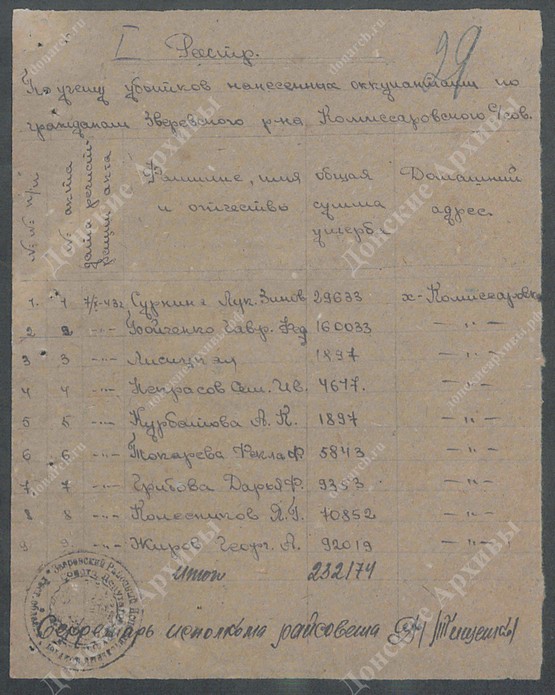 29
I Реестр.
По учету убытков нанесенных оккупантами по
гражданам Зверевского р-на Комиссаровского с/сов.
№ № п/п
№ акта
дата регистрации акта
Фамилие, имя и отчество
общая сумма ущерб.
Домашний адрес.
1. 1 7/X-43г Лук. Зинов 29633 х-Комиссаровка
2 2 -"- Бойченко Гавр. Фед 160033 -"-
3 3 -"- 1897 -"-
4 4 -"- Некрасов Сем. Ив. 4617. -"-
5 5 -"- Курбатова А. К. 1897 -"-
6 6 -"- Токарева Фекла Ф 5843 -"-
7 7 -"- Грибова Дарья Ф. 9353 -"-
8 8 -"- Колесников Я. Г. 70852 -"-
9 9 -"- Жиров Георг. А. 92019 -"-
итог 232174
Секретарь исполкома райсовета /Тищенко/
Донские Архивы
www.donarch.ru